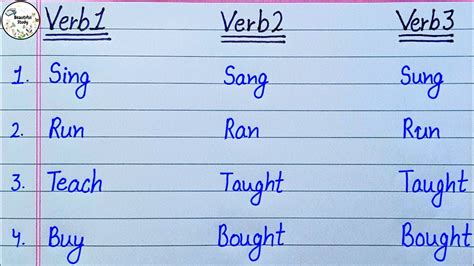 Beautiful Study
Verb1 Verb2 Verb3
1. Sing Sang Sung
2. Run Ran Run
3. Teach Taught Taught
4. Buy Bought Bought